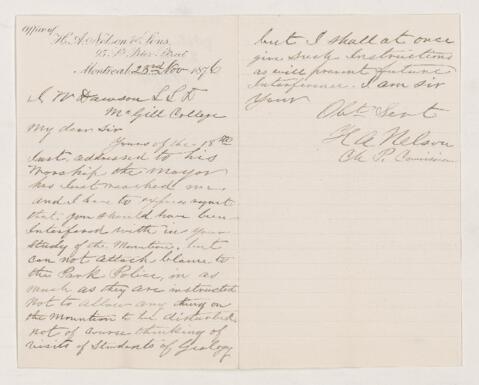 Office of
H. A. Nelson & Sons,
St. Peter Street
Montreal, 23rd Nov 1876
J W Dawson L L D
McGill College
My dear Sir
Yours of the 18th
Inst. addressed to his
Worship the Mayor
has Just reached me,
and I have to express regret
that you should have been
Interfered with in your
Study of the Mountain, but
can not attach blame to
the Park Police, in as
much as they are instructed
not to allow any thing on
the Mountain to be disturbed
not of course thinking of
visits of Students of Geology
but I shall at once
give such Instructions
as will prevent future
Interference. I am Sir
Your
Obt Servt
H A Nelson
Ch P. Commission